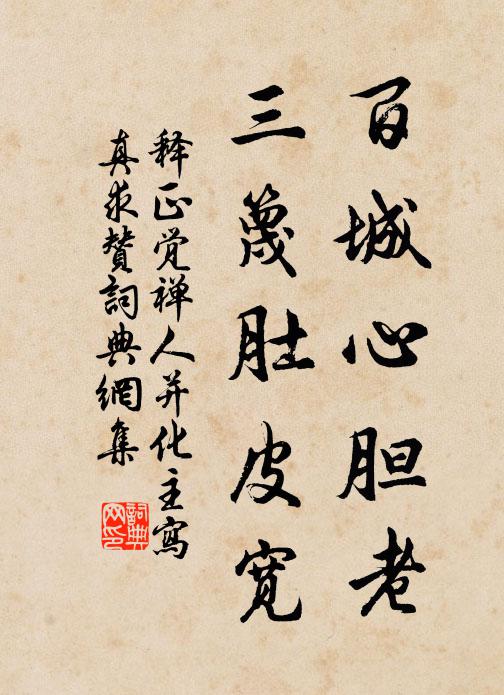 百城心胆老
三篾肚皮宽
释正觉禅人并化主写
真求赞词典網集
詞典
网印